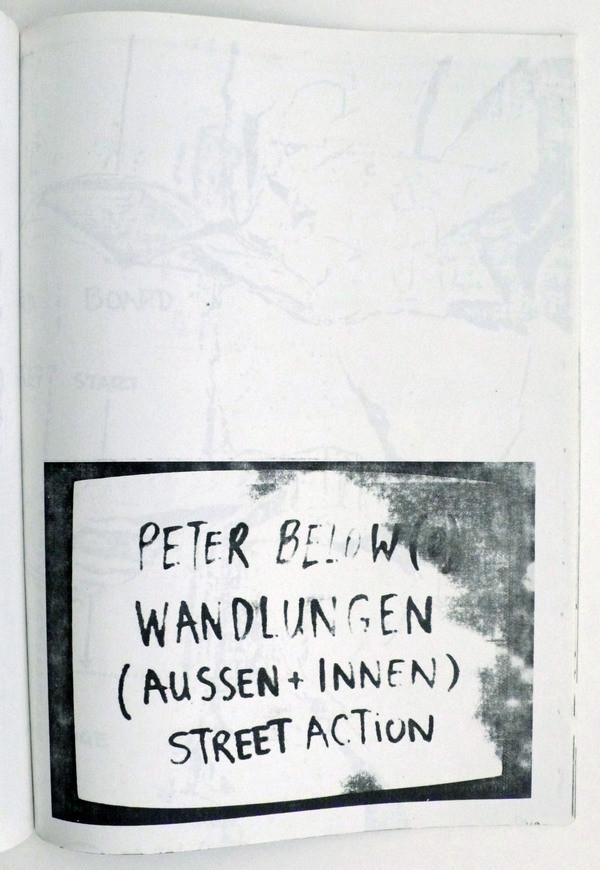 BOARD
START
PETER BELOW
WANDLUNGEN
(AUSSEN + INNEN)
STREET ACTION